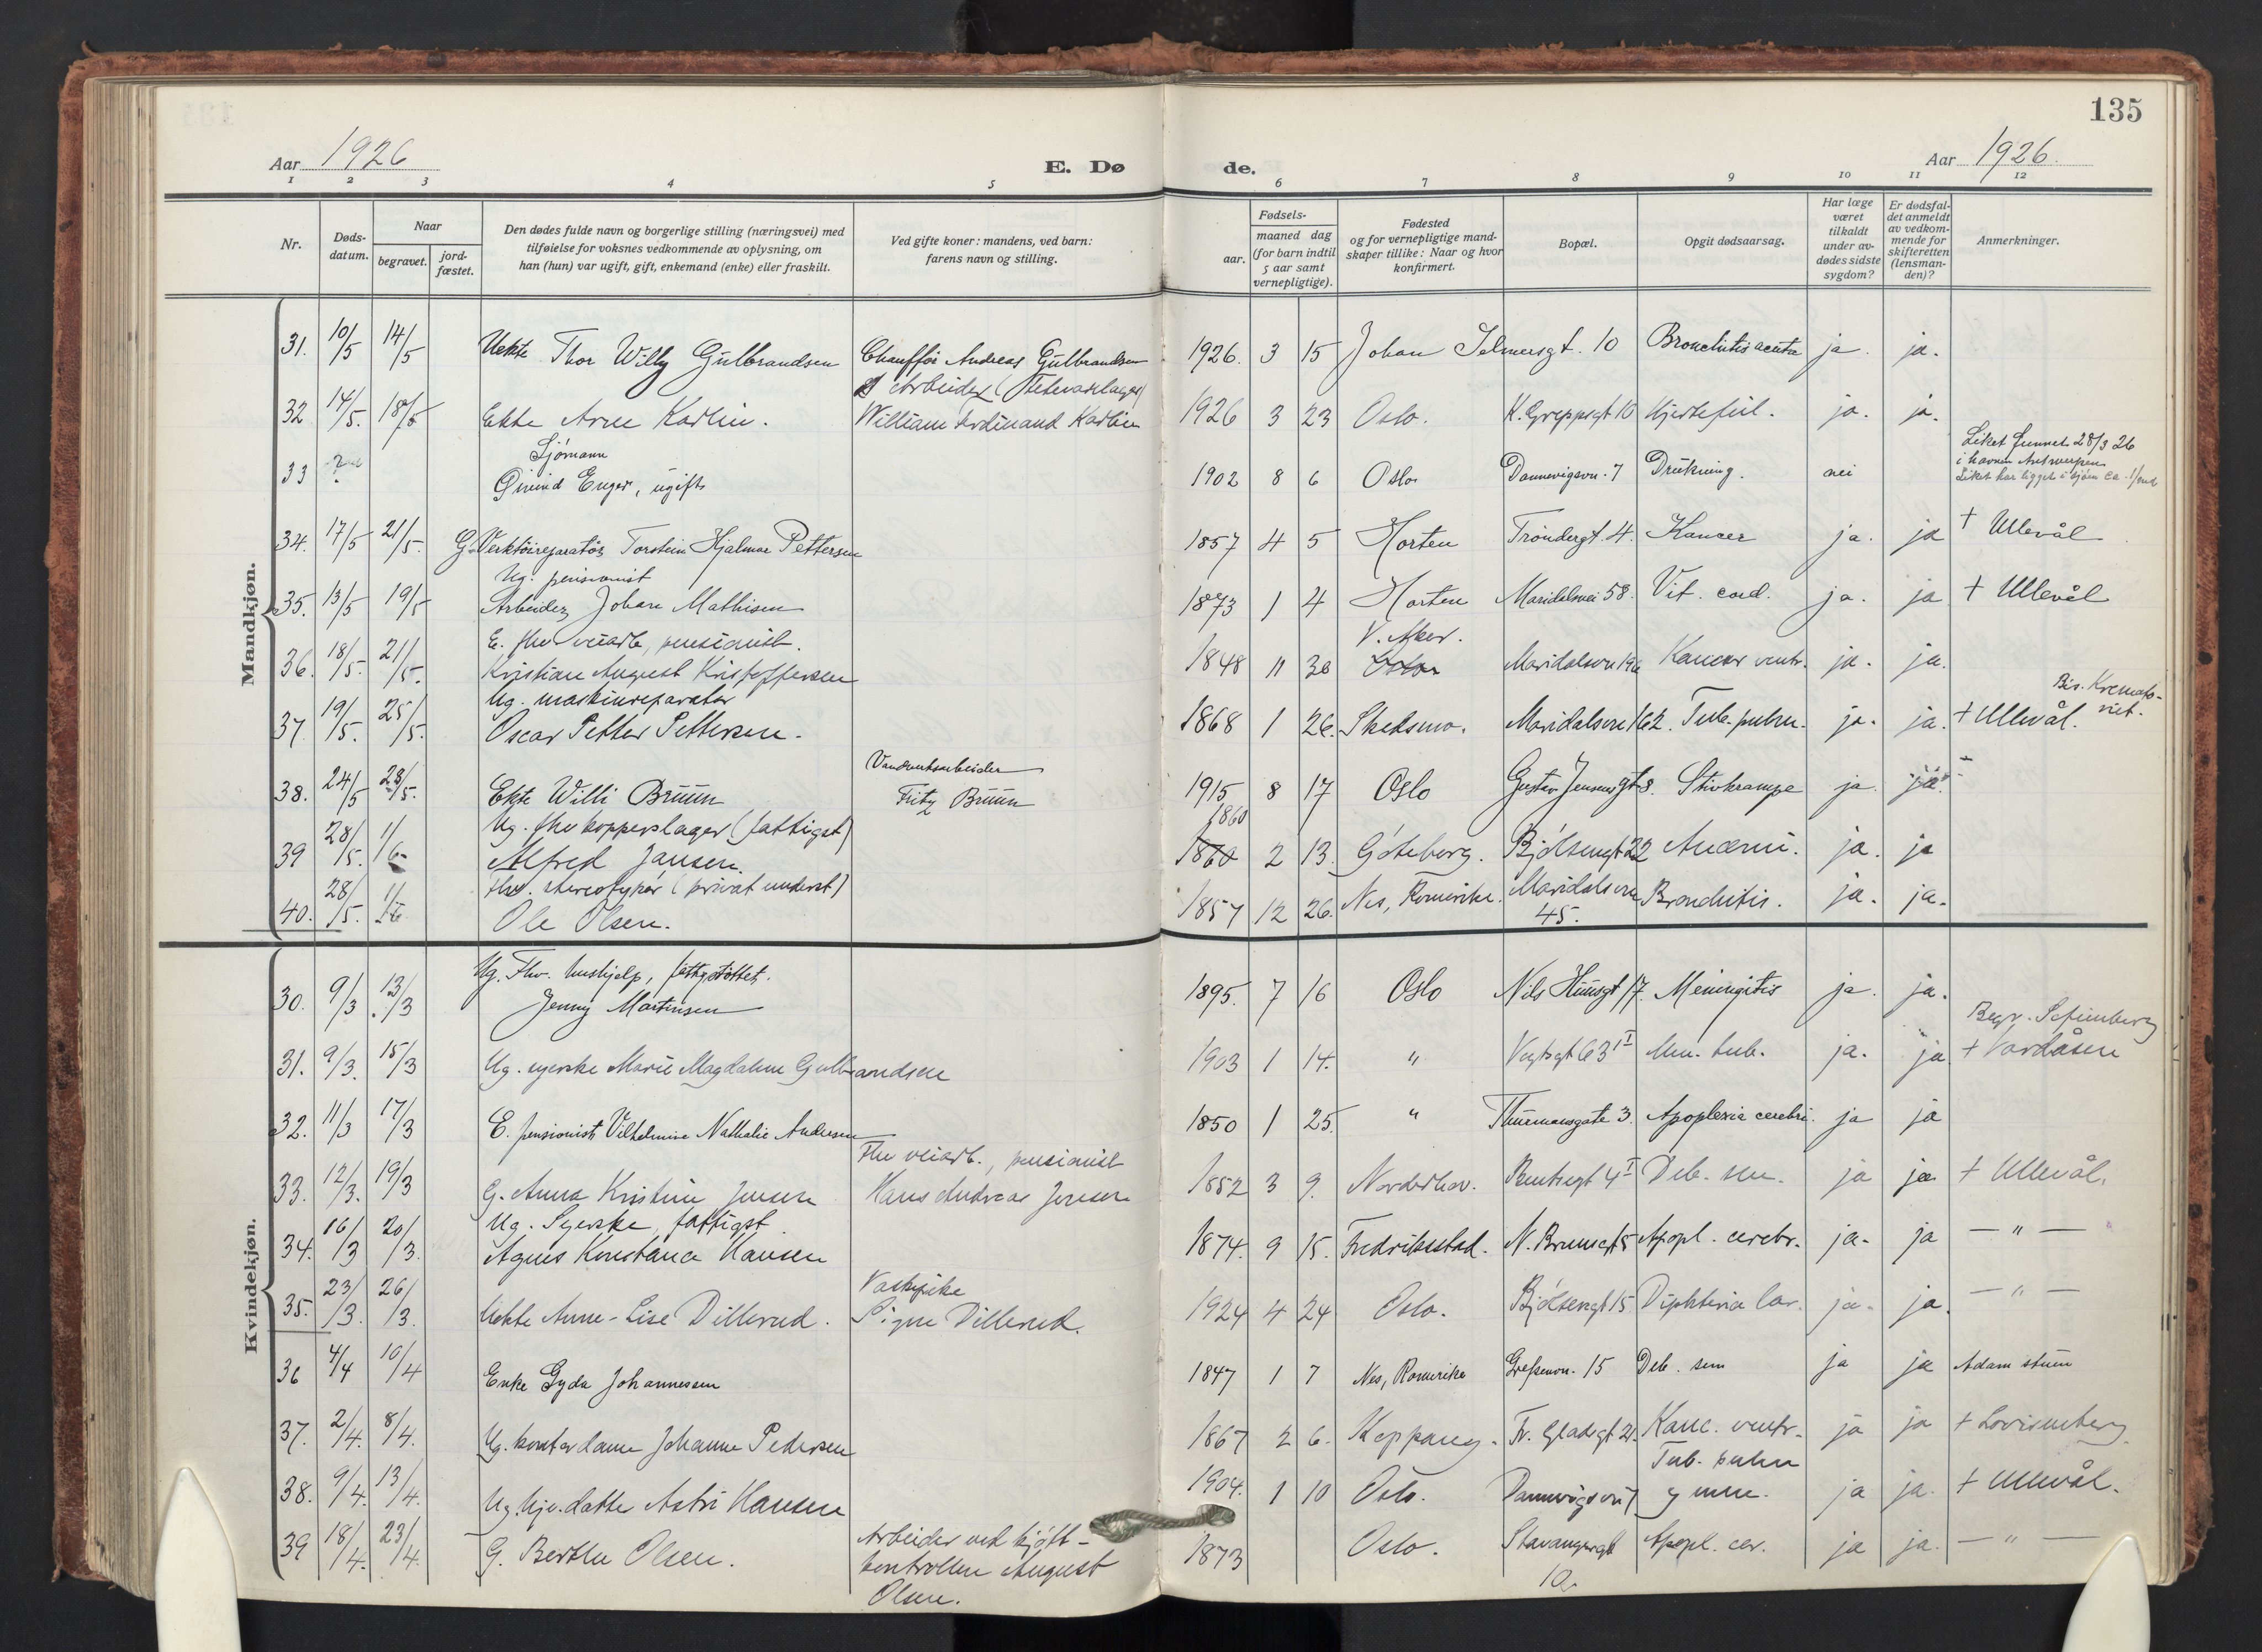 135
Aar 1926
E. Dø
de.
Aar 1926.
1 2 3 4 5 6 7 8 9 10 11 12
Nr.
Døds-
datum.
Naar
begravet.
jord-
fæstet.
Den dødes fulde navn og borgerlige stilling (næringsvei) med
tilføielse for voksnes vedkommende av oplysning, om
han (hun) var ugift, gift, enkemand (enke) eller fraskilt.
Ved gifte koner: mandens, ved barn:
farens navn og stilling.
Fødsels-
aar.
maaned dag
(for barn indtil
5 aar samt
vernepligtige).
Fødested
og for vernepligtige mand-
skaper tillike: Naar og hvor
konfirmert.
Bopæl.
Opgit dødsaarsag.
Har læge
været
tilkaldt
under av-
dødes sidste
sygdom?
Er dødsfal-
det anmeldt
av vedkom-
mende for
skifteretten
(lensman-
den)?
Anmerkninger.
Mandkjøn.
31. 10/5 14/5 Uekte Thor Willy Gulbrandsen Chauffør Andreas Gulbrandsen 1926. 3 15 Johan Selmersgt. 10 Bronchitis acuta ja. ja.
Arbeider
32 14/5. 18/5 Ekte Arne Karlin. William Ferdinand Karlin 1926 3 23 Oslo. K. Greppsgt 10 Hjertefeil. ja. ja.
Sjømann
Liket funnet 28/3 26
i havnen Antwerpen
33 ? Øivind Enger, ugift 1902 8 6 Oslo Dannevigsvn. 7 Drukning. nei Liket har ligget i sjøen ca. 1/mnd
34. 17/5 21/5. G. Verktøireparatør Torstein Hjalmar Pettersen 1857 4 5 Horten Trøndergt. 4. Kancer ja. ja † Ullevål
Ug. pensionist
35. 13/5 19/5 Arbeider Johan Mathisen 1873 1 4 Horten Maridalsvei 58. Vit. cord. ja. ja † Ullevål
E. fhv veiarb, pensionist. V. Aker.
36. 18/5. 21/5. Kristian August Kristoffersen 1848 11 30 Oslo Maridalsvn 196 Kancer ventr. ja. ja.
Ug. maskinreparatør
Bis. Kremato-
riet.
37 19/5. 25/5. Oscar Petter Pettersen. 1868 1 26. Skedsmo. Maridalsvn 162. Tub. pulm. ja. ja. † Ullevål.
Vandverksarbeider
38. 24/5 28/5. Ekte Willi Bruun Fritz Bruun 1915 8 17 Oslo Gustav Jensensgt 8. Stivkrampe ja ja.
Ug. fhv kopperslager (fattigst) 1860
39 28/5. 1/6 Alfred Jansen. 1860 2 13. Göteborg. Bjølsengt 22 Anæmi. ja. ja
Fhv. stereotypør (privat underst)
40. 28/5. 1/6 Ole Olsen. 1857 12 26. Nes, Romerike. Maridalsvn 45. Bronchitis. ja. ja.
Kvindekjøn.
Ug. Fhv. hushjelp, fattigstøttet.
30. 9/3 13/3 Jenny Martinsen 1895. 7 16 Oslo Nils Huusgt 17. Meningitis ja. ja.
31. 9/3. 15/3 Ug. syerske Marie Magdalene Gulbrandsen 1903 1 14. " Vogtsgt 63 I Men. tub. ja. ja. † Vardåsen
32. 11/3 17/3 E. pensionist Vilhelmine Nathalie Andersen 1850 1 25. " Thurmannsgate 3. Apoplexia cerebri. ja ja
Fhv veiarb., pensionist
33. 12/3. 19/3 G. Anna Kristine Jensen Hans Andreas Jensen 1852 3 9. Norderhov. Bentsegt 4 I Deb. sen. ja ja † Ullevål.
Ug. Syerske, fattigst
34. 16/3 20/3. Agnes Konstance Hansen 1874. 9 15. Fredrikstad. N. Bruunsgt 5 Apopl. cerebr. ja. ja — " —
Vaskepike
35. 23/3. 26/3. Uekte Anne-Lise Dillerud. Signe Dillerud. 1924 4 24 Oslo. Bjølsengt 15. Diphteria lar. ja. ja. — " —
36 4/4 10/4 Enke Gyda Johannessen 1847 1 7 Nes, Romerike Grefsenvn. 15 Deb. sen ja ja Adamstuen
37. 2/4. 8/4. Ug. kontordame Johanne Pedersen 1867 2 6. Koppang. Fr. Gladsgt 21. Kanc. ventr. ja ja † Lovisenberg
Tub. pulm
38. 9/4. 13/4. Ug. hjv. datter Astri Hansen 1904. 1 10 Oslo. Dannevigsvn 7 og men. ja ja. † Ullevål.
39 18/4. 23/4. G. Berthe Olsen. Arbeider ved kjøtt-
kontrollen August
Olsen. 1873 Oslo. Stavangergt
10. Apopl. cer. ja ja. — " —